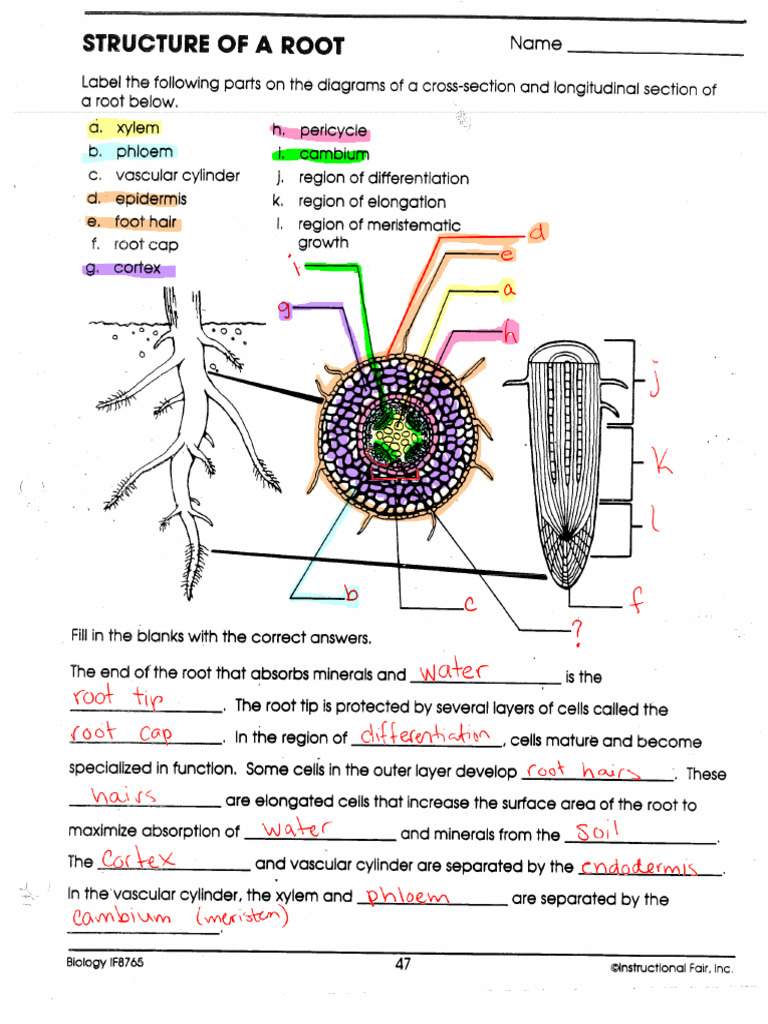 STRUCTURE OF A ROOT Name
Label the following parts on the diagrams of a cross-section and longitudinal section of
a root below.
a. xylem
b. phloem
c. vascular cylinder
d. epidermis
e. foot hair
f. root cap
g. cortex
h. pericycle
i. cambium
j. region of differentiation
k. region of elongation
l. region of meristematic
growth
d
e
i
a
g
h
j
k
l
b
c
f
?
Fill in the blanks with the correct answers.
The end of the root that absorbs minerals and water is the
root tip. The root tip is protected by several layers of cells called the
root cap. In the region of differentiation, cells mature and become
specialized in function. Some cells in the outer layer develop root hairs. These
hairs are elongated cells that increase the surface area of the root to
maximize absorption of water and minerals from the soil.
The cortex and vascular cylinder are separated by the endodermis.
In the vascular cylinder, the xylem and phloem are separated by the
cambium (meristem).
Biology IF8765 47 ©Instructional Fair, Inc.